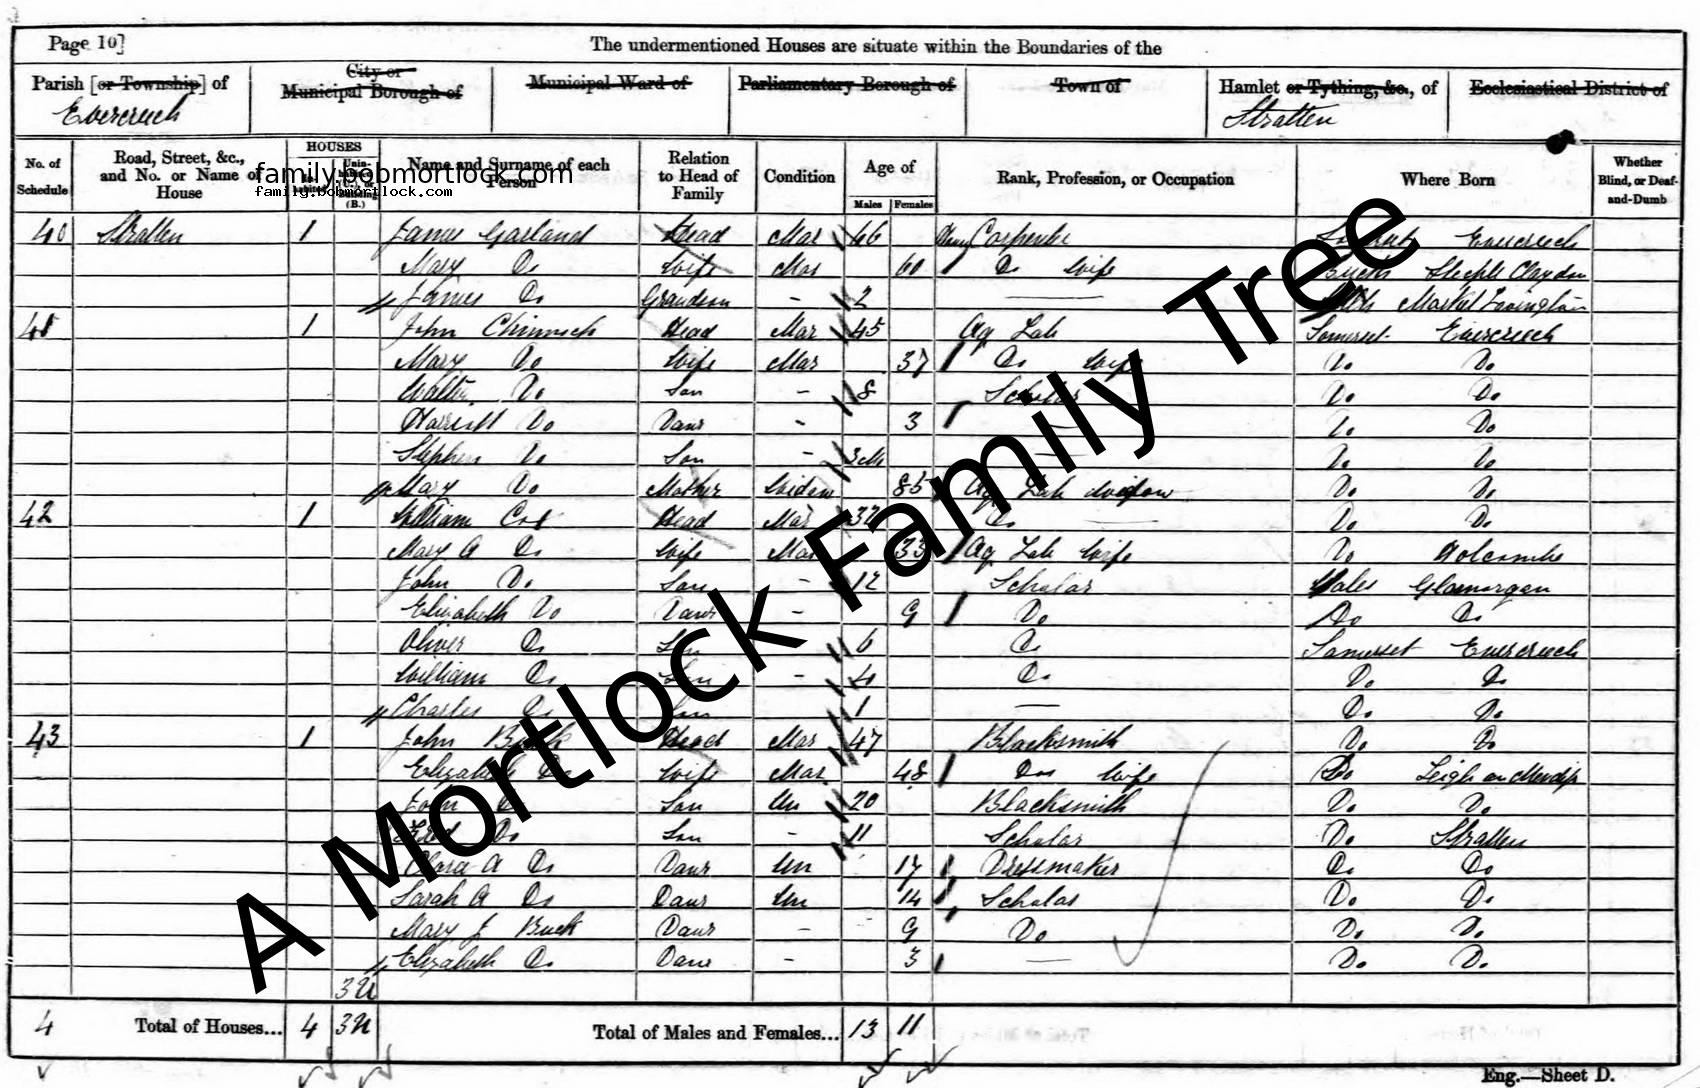 Page 10]
The undermentioned Houses are situate within the Boundaries of the
Parish [or Township] of Evercreech
City or Municipal Borough of
Municipal Ward of
Parliamentary Borough of
Town of
Hamlet or Tything, &c., of Stratten
Ecclesiastical District of
No. of Schedule
Road, Street, &c., and No. or Name of House
HOUSES
(B.)
Name and Surname of each Person
Relation to Head of Family
Condition
Age of
Males
Females
Rank, Profession, or Occupation
Where Born
Whether Blind, or Deaf-and-Dumb
family.bobmortlock.com
family.bobmortlock.com
40 Stratten 1 James Garland Head Mar 66 Carpenter Evercreech
Mary Do Wife Mar 60 Do Wife Bucks Steeple Claydon
James Do Grandson - 2 — Market
1 John Head Mar 45 Ag Lab Somerset Evercreech
Mary Do Wife Mar 37 Do Wife Do Do
Walter Do Son - 8 Scholar Do Do
Harriett Do Daur - 3 — Do Do
Stephen Do Son - 3M — Do Do
Mary Do Mother Widow 85 Ag Lab widow Do Do
42 1 William Head Mar Do — Do Do
Mary A Do Wife Mar 33 Ag Lab Wife Do Holcombe
John Do Son - 12 Scholar Wales Glamorgan
Elizabeth Do Daur - 9 Do Do Do
Oliver Do Son 6 Do Somerset Evercreech
William Do Son - 4 Do Do Do
Charles Do Son 1 — Do Do
43 1 John Buck Head Mar 47 Blacksmith Do Do
Elizabeth Do Wife Mar 48 Do Wife Do Leigh on Mendip
John Do Son Un 20 Blacksmith Do Do
Fred Do Son - 11 Scholar Do Stratten
Clara A Do Daur Un 17 Dressmaker Do Do
Sarah A Do Daur Un 14 Scholar Do Do
Mary J Buck Daur - 9 Do Do Do
Elizabeth Do Daur - 3 — Do Do
3U
4 Total of Houses... 4 3U Total of Males and Females... 13 11
Eng.—Sheet D.
A Mortlock Family Tree